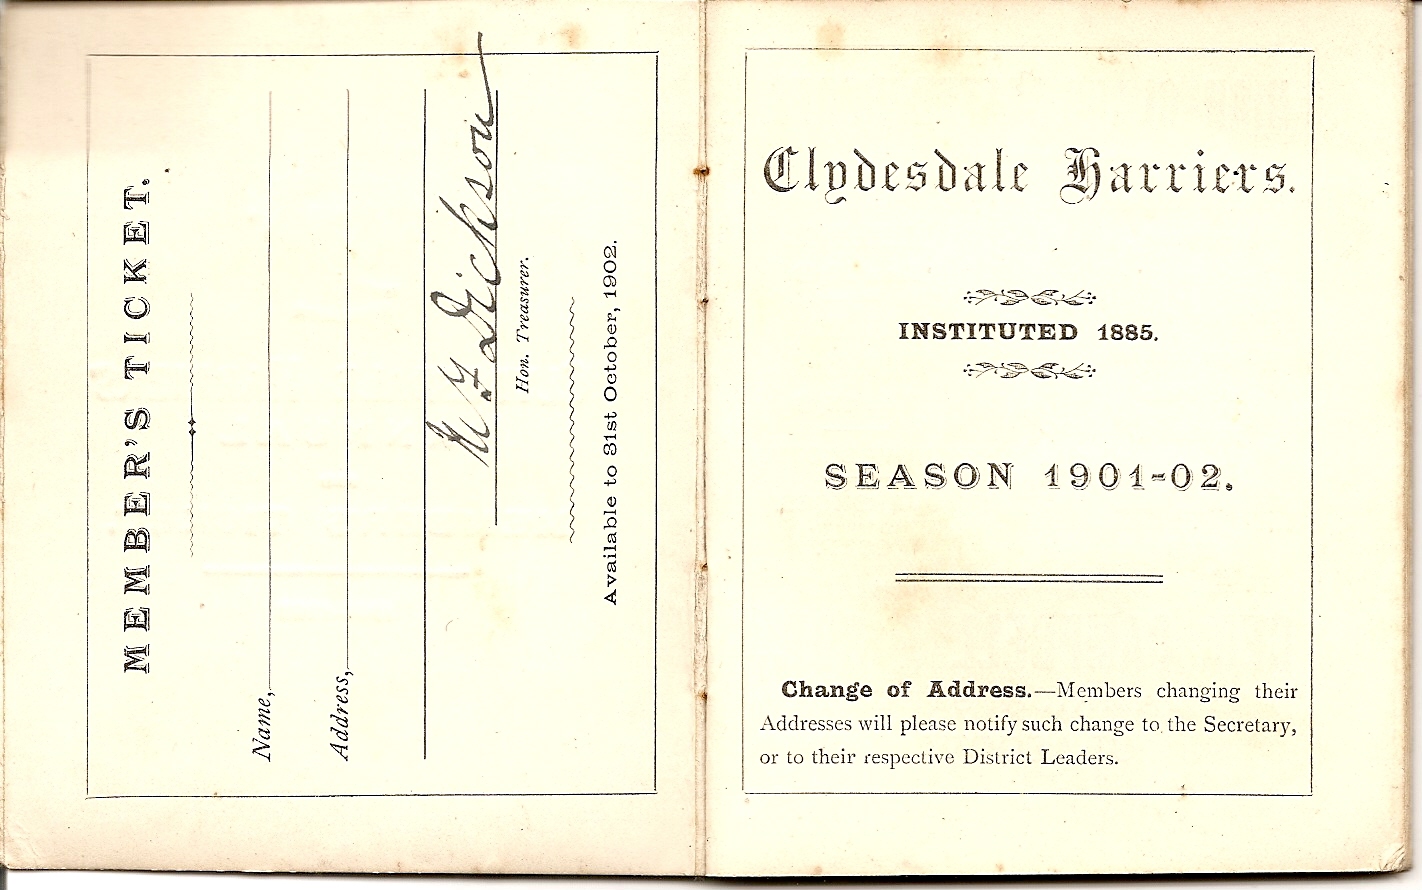 MEMBER'S TICKET.
Name,
Address,
W F Dickson
Hon. Treasurer.
Available to 31st October, 1902.
Clydesdale Harriers.
INSTITUTED 1885.
SEASON 1901-02.
Change of Address.—Members changing their
Addresses will please notify such change to the Secretary,
or to their respective District Leaders.